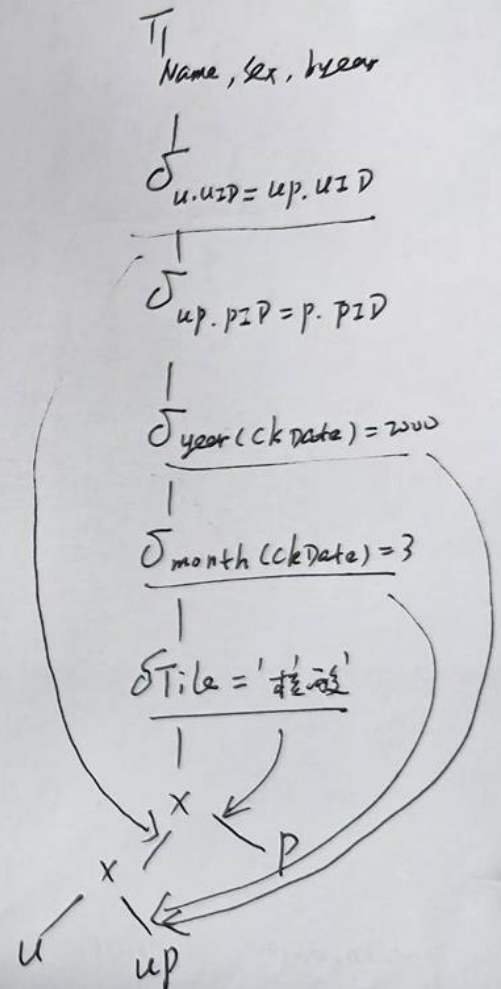 π Name, sex, byear
δ u.uID = up.uID
δ up.pID = p.pID
δ year(ckDate) = 2000
δ month(ckDate) = 3
δ Tile = '核酸'
×
× p
u up